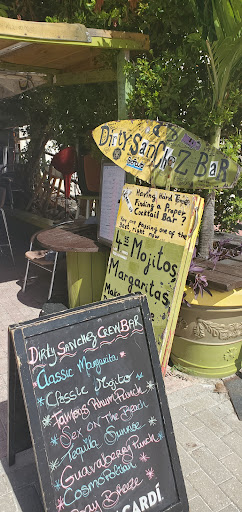 Dirty SancheZ Bar
Having hard Time
Finding a Proper
Cocktail Bar?
best right now
4$ Mojitos
Margaritas
DiRty SANcheZ CRew BAR
Classic Margarita
Classic Mojito
Famous Rhum Punch
Sex on The Beach
Tequila Sunrise
Guavaberry Punch
Cosmopolitan
Bay Breeze
CARDÍ